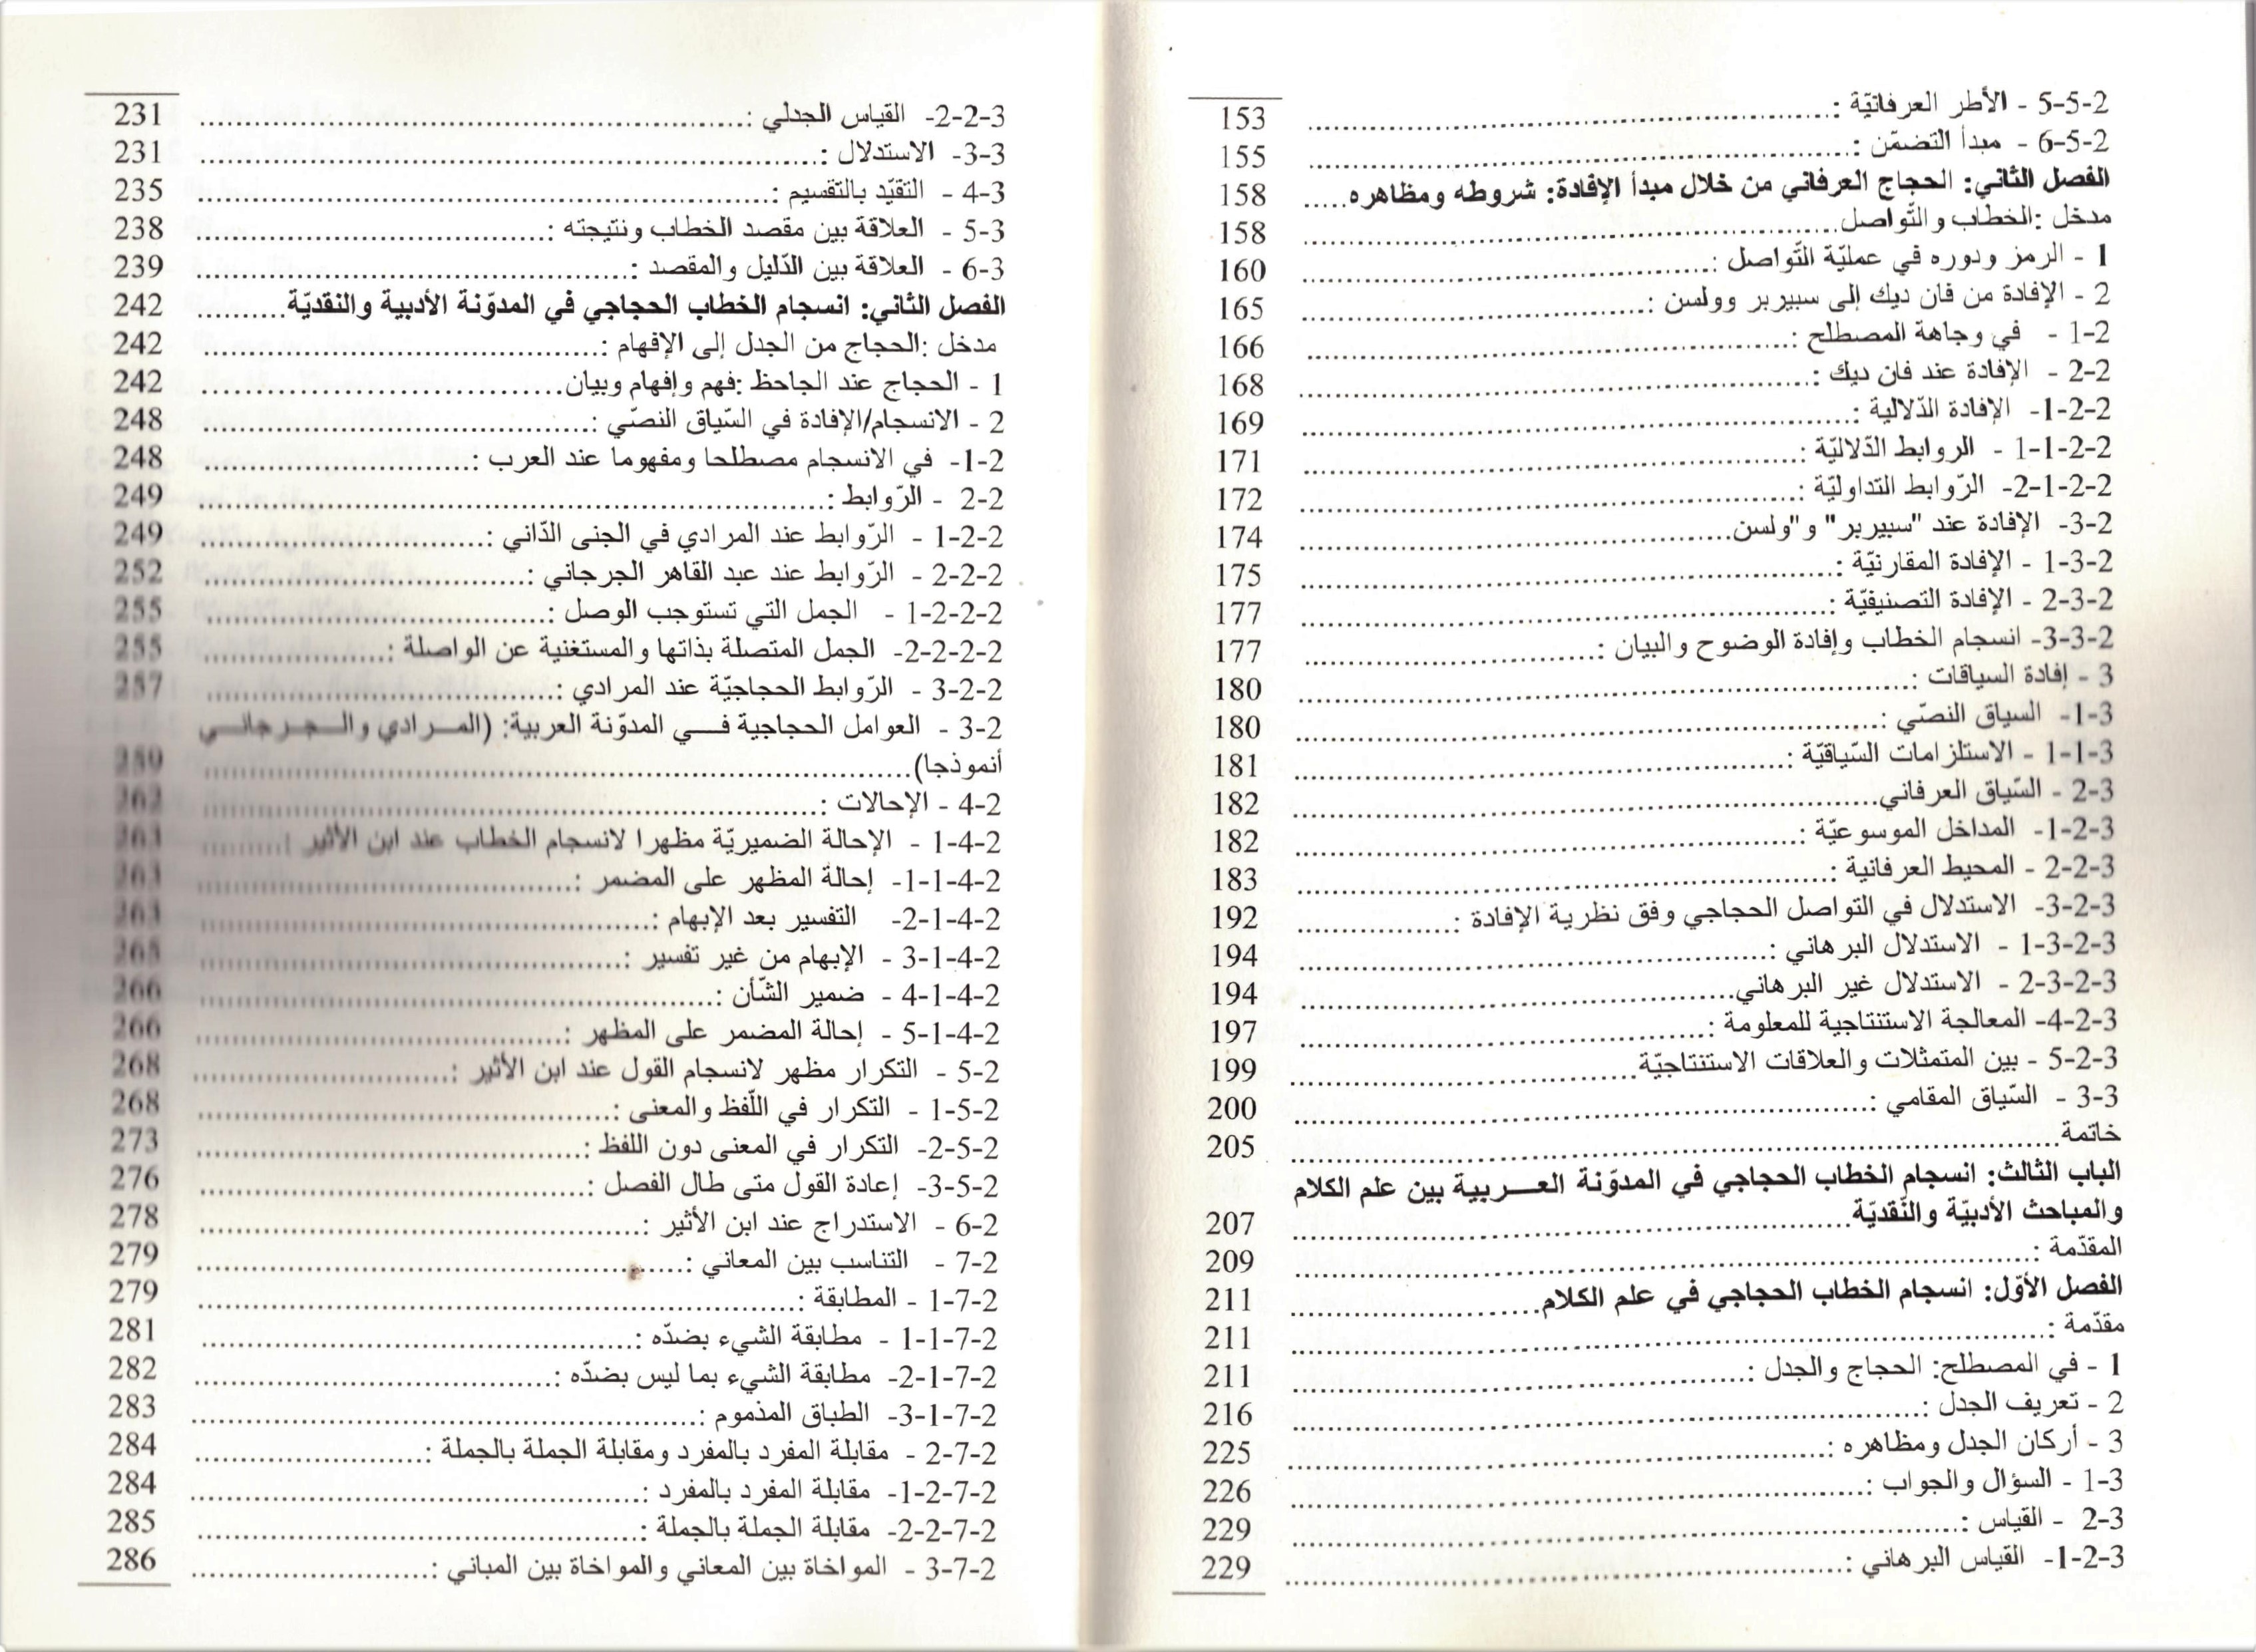 2-5-5 - الأطر العرفانيّة : 153
2-5-6 - مبدأ التضمّن : 155
الفصل الثاني: الحجاج العرفاني من خلال مبدأ الإفادة: شروطه ومظاهره 158
مدخل :الخطاب والتّواصل 158
1 - الرمز ودوره في عمليّة التّواصل : 160
2 - الإفادة من فان ديك إلى سبيربر وولسن : 165
2-1 - في وجاهة المصطلح : 166
2-2 - الإفادة عند فان ديك : 168
2-2-1- الإفادة الدّلالية : 169
2-2-1-1 - الروابط الدّلاليّة : 171
2-2-1-2- الرّوابط التداوليّة : 172
2-3- الإفادة عند "سبيربر" و"ولسن 174
2-3-1 - الإفادة المقارنيّة : 175
2-3-2 - الإفادة التصنيفيّة : 177
2-3-3- انسجام الخطاب وإفادة الوضوح والبيان : 177
3 - إفادة السياقات : 180
3-1- السياق النصّي : 180
3-1-1 - الاستلزامات السّياقيّة : 181
3-2 - السّياق العرفاني 182
3-2-1- المداخل الموسوعيّة : 182
3-2-2 - المحيط العرفانية : 183
3-2-3- الاستدلال في التواصل الحجاجي وفق نظرية الإفادة : 192
3-2-3-1 - الاستدلال البرهاني : 194
3-2-3-2 - الاستدلال غير البرهاني 194
3-2-4- المعالجة الاستنتاجية للمعلومة : 197
3-2-5 - بين المتمثلات والعلاقات الاستنتاجيّة 199
3-3 - السّياق المقامي : 200
خاتمة 205
الباب الثالث: انسجام الخطاب الحجاجي في المدوّنة العربية بين علم الكلام
والمباحث الأدبيّة والنّقديّة 207
المقدّمة : 209
الفصل الأوّل: انسجام الخطاب الحجاجي في علم الكلام 211
مقدّمة : 211
1 - في المصطلح: الحجاج والجدل : 211
2 - تعريف الجدل : 216
3 - أركان الجدل ومظاهره : 225
3-1 - السؤال والجواب : 226
3-2 - القياس : 229
3-2-1- القياس البرهاني : 229
3-2-2- القياس الجدلي : 231
3-3- الاستدلال : 231
3-4 - التقيّد بالتقسيم : 235
3-5 - العلاقة بين مقصد الخطاب ونتيجته : 238
3-6 - العلاقة بين الدّليل والمقصد : 239
الفصل الثاني: انسجام الخطاب الحجاجي في المدوّنة الأدبية والنقديّة 242
مدخل :الحجاج من الجدل إلى الإفهام : 242
1 - الحجاج عند الجاحظ :فهم وإفهام وبيان 242
2 - الانسجام/الإفادة في السّياق النصّي : 248
2-1- في الانسجام مصطلحا ومفهوما عند العرب : 248
2-2 - الرّوابط : 249
2-2-1 - الرّوابط عند المرادي في الجنى الدّاني : 249
2-2-2 - الرّوابط عند عبد القاهر الجرجاني : 252
2-2-2-1 - الجمل التي تستوجب الوصل : 255
2-2-2-2- الجمل المتصلة بذاتها والمستغنية عن الواصلة : 255
2-2-3 - الرّوابط الحجاجيّة عند المرادي : 257
2-3 - العوامل الحجاجية في المدوّنة العربية: (المرادي والجرجاني
أنموذجا) 259
2-4 - الإحالات : 262
2-4-1 - الإحالة الضميريّة مظهرا لانسجام الخطاب عند ابن الأثير : 263
2-4-1-1- إحالة المظهر على المضمر : 263
2-4-1-2- التفسير بعد الإبهام : 263
2-4-1-3 - الإبهام من غير تفسير : 265
2-4-1-4 - ضمير الشّأن : 266
2-4-1-5 - إحالة المضمر على المظهر : 266
2-5 - التكرار مظهر لانسجام القول عند ابن الأثير : 268
2-5-1 - التكرار في اللّفظ والمعنى : 268
2-5-2- التكرار في المعنى دون اللفظ : 273
2-5-3- إعادة القول متى طال الفصل : 276
2-6 - الاستدراج عند ابن الأثير : 278
2-7 - التناسب بين المعاني : 279
2-7-1 - المطابقة : 279
2-7-1-1 - مطابقة الشيء بضدّه : 281
2-7-1-2- مطابقة الشيء بما ليس بضدّه : 282
2-7-1-3- الطباق المذموم : 283
2-7-2 - مقابلة المفرد بالمفرد ومقابلة الجملة بالجملة : 284
2-7-2-1- مقابلة المفرد بالمفرد : 284
2-7-2-2- مقابلة الجملة بالجملة : 285
2-7-3 - المواخاة بين المعاني والمواخاة بين المباني : 286